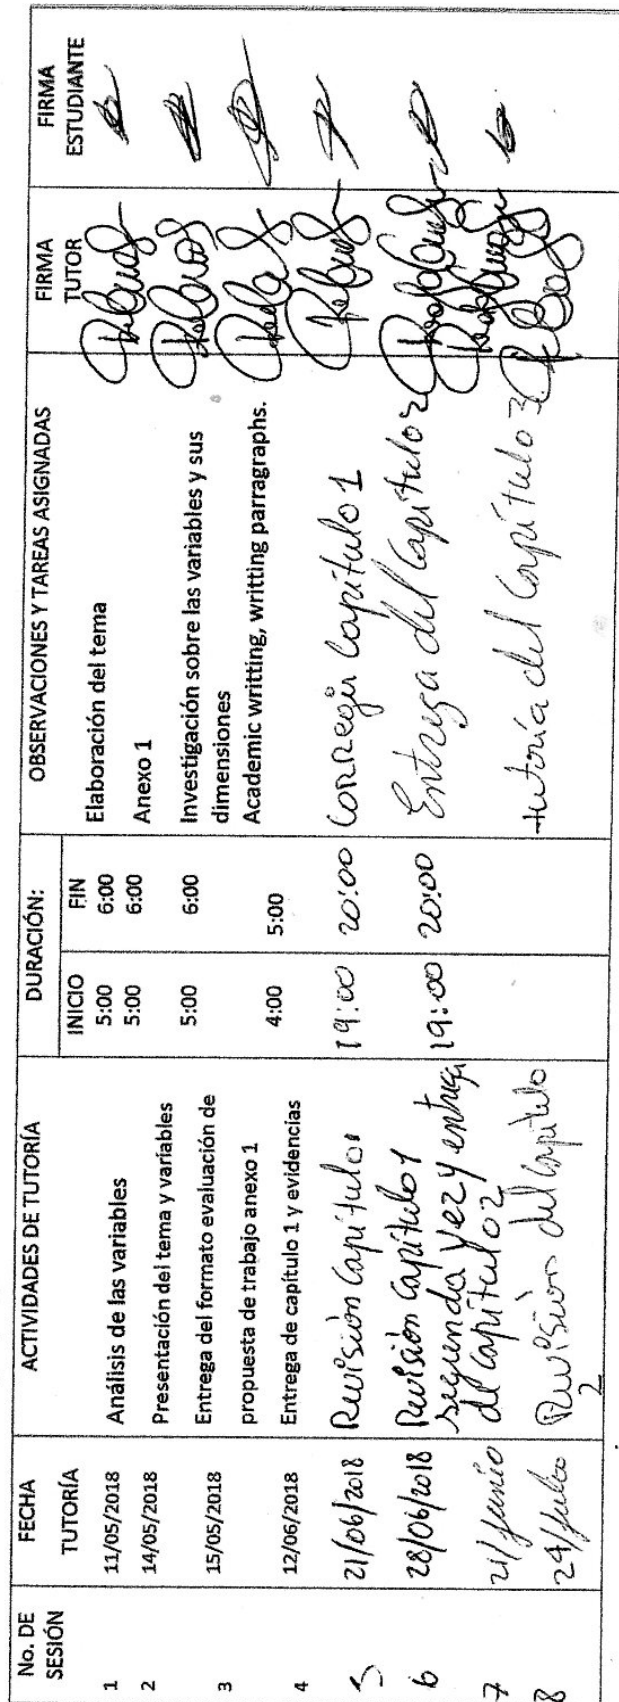 No. DE SESIÓN
FECHA TUTORÍA
ACTIVIDADES DE TUTORÍA
DURACIÓN:
INICIO
FIN
OBSERVACIONES Y TAREAS ASIGNADAS
FIRMA TUTOR
FIRMA ESTUDIANTE
1 11/05/2018 Análisis de las variables 5:00 6:00 Elaboración del tema
2 14/05/2018 Presentación del tema y variables 5:00 6:00 Anexo 1
3 15/05/2018 Entrega del formato evaluación de 5:00 6:00 Investigación sobre las variables y sus
propuesta de trabajo anexo 1 dimensiones
4 12/06/2018 Entrega de capítulo 1 y evidencias 4:00 5:00 Academic writting, writting parragraphs.
5 21/06/2018 Revisión Capítulo 1 19:00 20:00 Corregir Capítulo 1
6 28/06/2018 Revisión Capítulo 1 19:00 20:00 Entrega del Capítulo 2
segunda vez y entrega
7 21/junio del Capítulo 2
8 24/julio Revisión del Capítulo tutoría del Capítulo 3
2